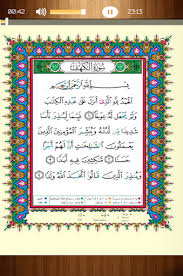 00:42 23:13
سُورَةُ الكَهْفِ
بِسْمِ ٱللَّهِ ٱلرَّحْمَٰنِ ٱلرَّحِيمِ
ٱلْحَمْدُ لِلَّهِ ٱلَّذِىٓ أَنزَلَ عَلَىٰ عَبْدِهِ ٱلْكِتَٰبَ
وَلَمْ يَجْعَل لَّهُۥ عِوَجَا ۜ ١ قَيِّمًا لِّيُنذِرَ بَأْسًا
شَدِيدًا مِّن لَّدُنْهُ وَيُبَشِّرَ ٱلْمُؤْمِنِينَ ٱلَّذِينَ
يَعْمَلُونَ ٱلصَّٰلِحَٰتِ أَنَّ لَهُمْ أَجْرًا
حَسَنًا ٢ مَّٰكِثِينَ فِيهِ أَبَدًا ٣
وَيُنذِرَ ٱلَّذِينَ قَالُوا۟ ٱتَّخَذَ ٱللَّهُ وَلَدًا ٤